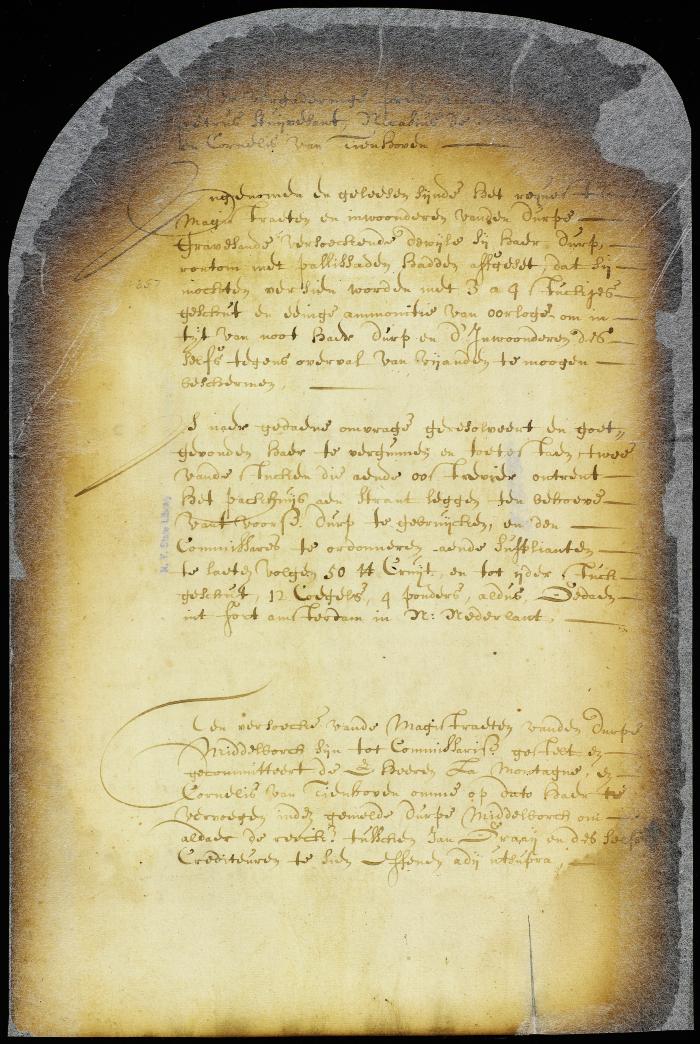 de vergaderinge
Petrus Stuijvesant, Nicasius de
en Cornelis van Tienhoven
Ingenomen en geleesen sijnde het reques
Magistraeten en inwoonderen vanden Durpe
Gravesande versoeckende dewijle sij haer Durp
rontom met pallissaden hadden affgeset, dat sij
mochten versien worden met 3 a 4 stuckjes
geschut en eenige ammonitie van oorloge om in
tijt van noot haer Durp en d'Inwoonderen des
selfs tegens overval van vijanden te moogen
beschermen,
1657
Is naer gedaene omvrage geresolveert en goet„
gevonden haer te vergunnen en toetestaen twee
vande stucken die aende oostrevier ontrent
het packhuijs aen strant leggen ten behoeve
vant voorsz. Durp te gebruijcken, en den
Commissares te ordonneren aende supplianten
te laeten volgen 50 lb Cruijt, en tot ijder stuck
geschut, 12 Coegels, 4 ponders, aldus, Gedaen
int fort amsterdam in N: Nederlant,
N. Y. State Library
Ten versoecke vande Magistraeten vanden Durpe
Middelborch sijn tot Commissarisz gestelt en
gecommitteert de E heeren La Montagne, en
Cornelis van Tienhoven omme op dato haer te
vervoegen inden gemelde Durpe Middelborch om
aldaer de reeck? tusschen Jan Graaij en des selfs
Crediteuren te sien Effenen adij utsupra,